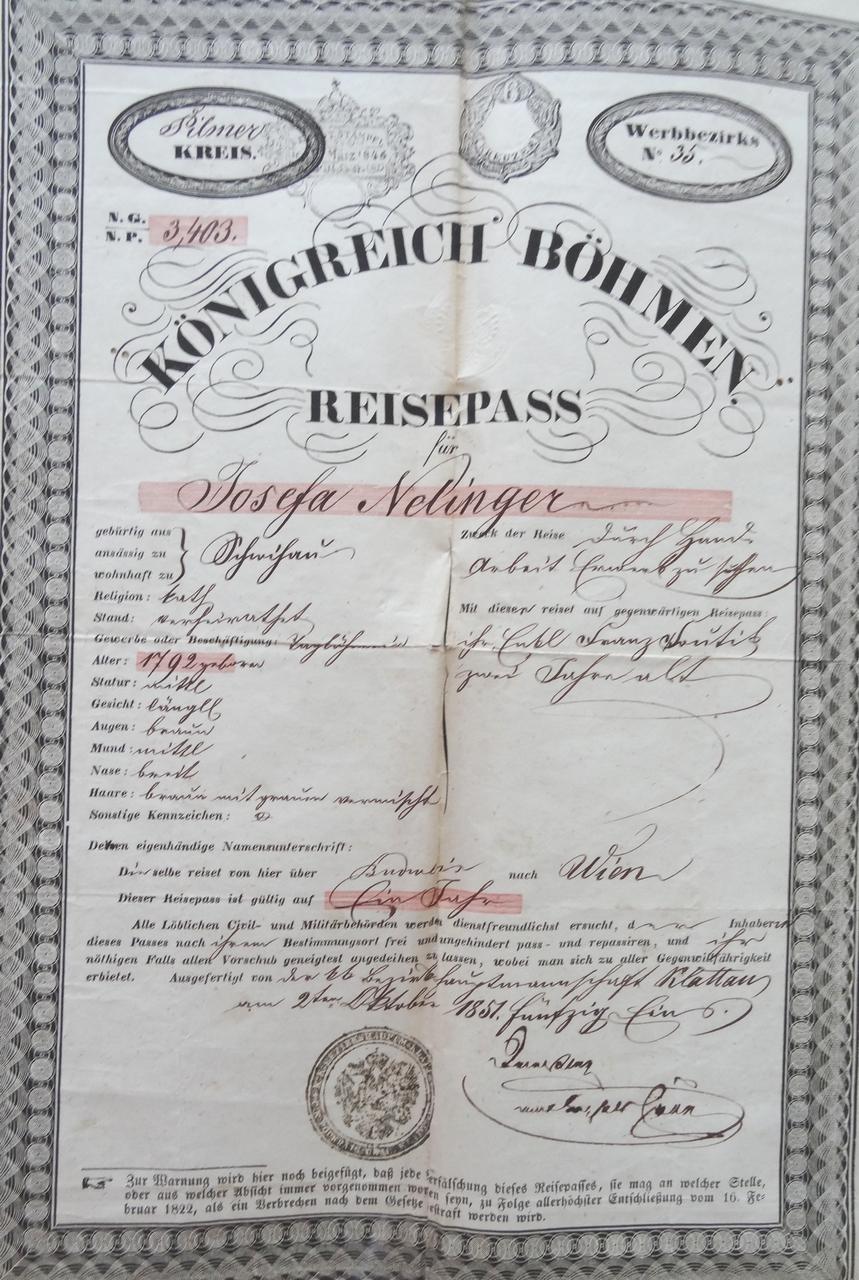 Pilsner
KREIS.
Werbbezirks
Nº 35.
N. G.
N. P. 3,403.
KÖNIGREICH BÖHMEN.
REISEPASS
für
Josefa Nelinger
gebürtig aus
ansässig zu
wohnhaft zu
Schwihau
Religion: kath
Stand: verheirathet
Gewerbe oder Beschäftigung: Taglöhnerin
Alter: 1792 geboren
Statur: mittl
Gesicht: längll
Augen: braun
Mund: mittl
Nase: breit
Haare: braun mit grauen vermischt
Sonstige Kennzeichen:
Zweck der Reise durch Hand
Arbeit Erwerb zu suchen
Mit dieser reiset auf gegenwärtigen Reisepass:
ihr Enkl Franz
zwei Jahre alt
Deren eigenhändige Namensunterschrift:
Dieselbe reiset von hier über Budweis nach Wien
Dieser Reisepass ist gültig auf Ein Jahr
Alle Löblichen Civil- und Militärbehörden werden dienstfreundlichst ersucht, der Inhaberin
dieses Passes nach ihrem Bestimmungsort frei und ungehindert pass- und repassiren, und ihr
nöthigen Falls allen Vorschub geneigtest angedeihen zu lassen, wobei man sich zu aller Gegenwillfährigkeit
erbietet. Ausgefertigt von der kk Bezirkshauptmannschaft Klattau
am 2ten Oktober 1851. fünfzig Eins.
Zur Warnung wird hier noch beigefügt, daß jede Verfälschung dieses Reisepasses, sie mag an welcher Stelle,
oder aus welcher Absicht immer vorgenommen worden seyn, zu Folge allerhöchster Entschließung vom 16. Fe-
bruar 1822, als ein Verbrechen nach dem Gesetze bestraft werden wird.